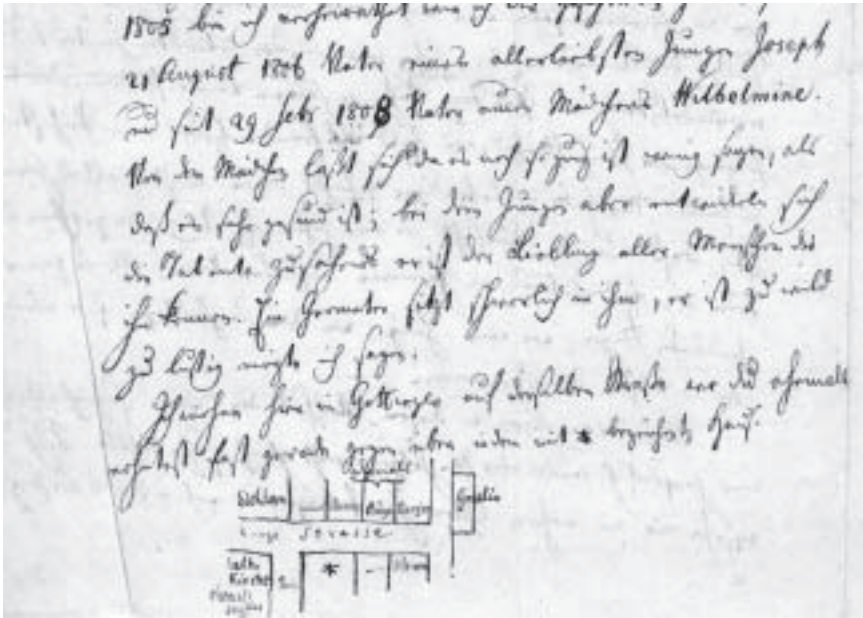 1805 bin ich verheirathet
21 August 1806 Vater eines allerliebsten Jungen Joseph
und seit 29 Febr 1808 Vater eines Mädchens Wilhelmine.
Von dem Mädchen läßt sich da es noch so jung ist wenig sagen, als
daß es sehr gesund ist; bei dem Jungen aber entwickeln sich
die Talente zusehends er ist der Liebling aller Menschen die
ihn kennen. Ein Geometer sitzt schwerlich in ihm, er ist zu wild
zu lustig möchte ich sagen.
hier in Göttingen auf derselben Straße wo Du ehemals
wohntest fast gerade gegen über in dem mit * bezeichneten Haus.
Strasse
Kirche
*